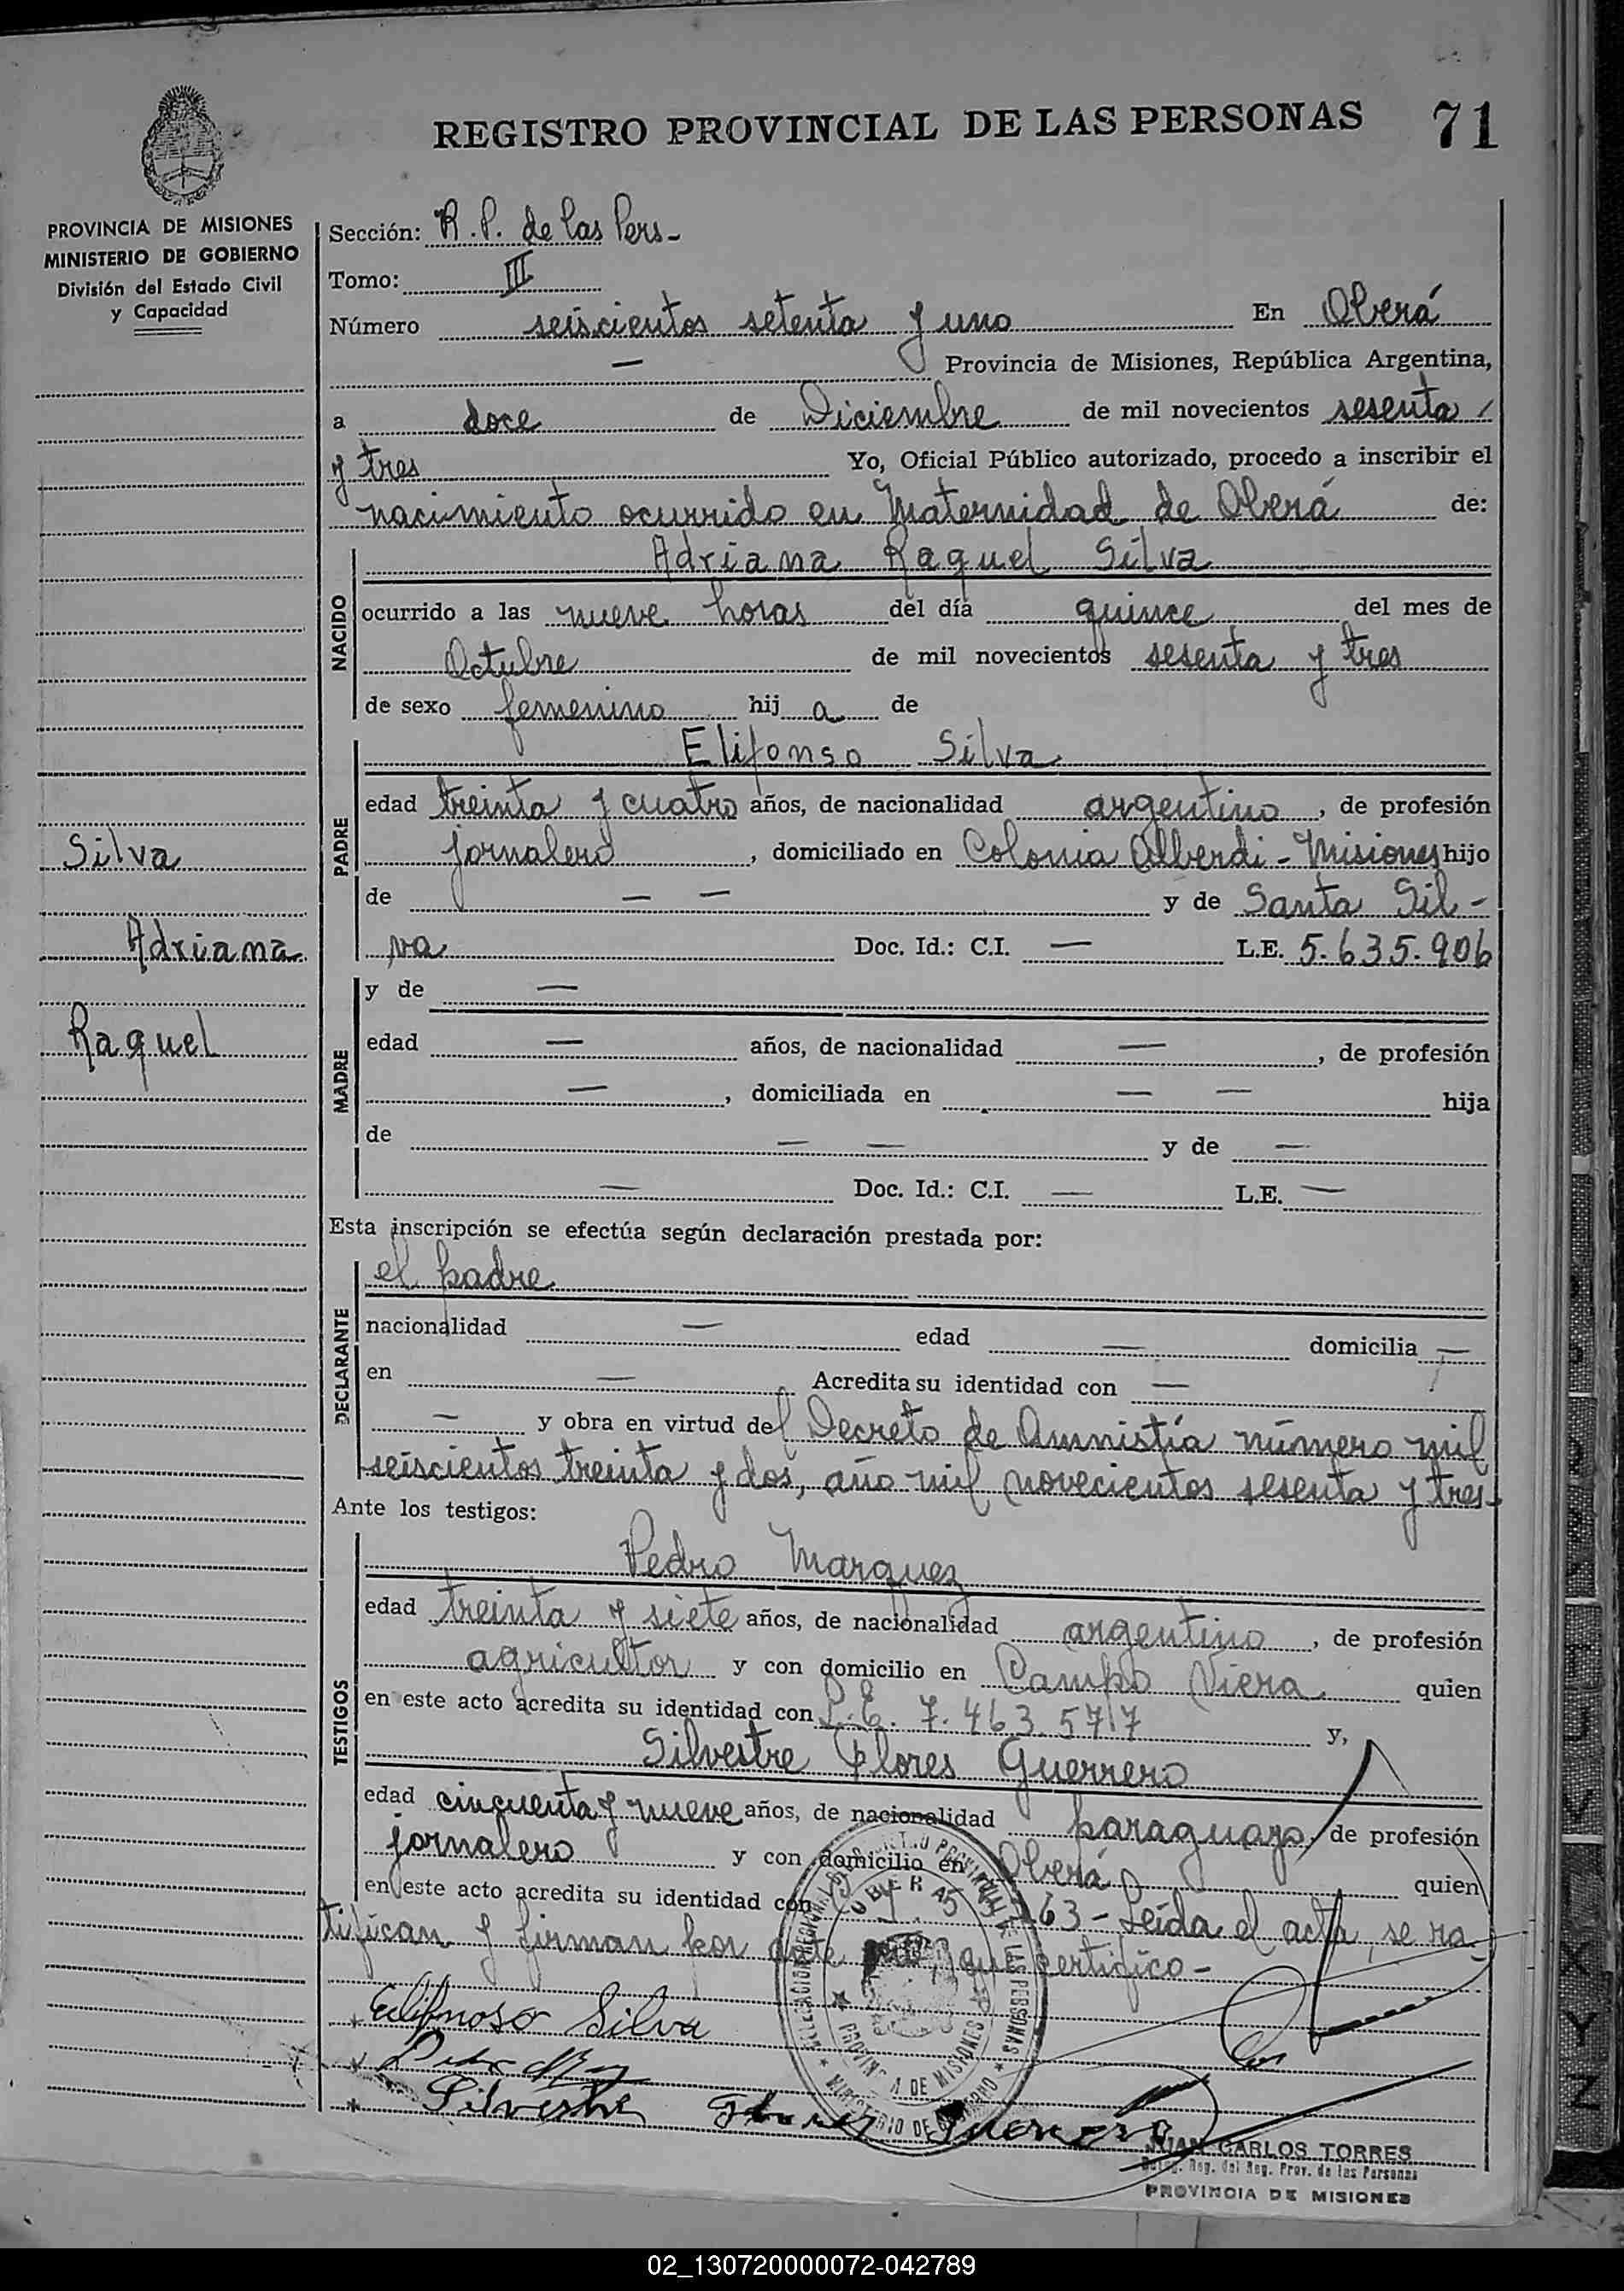 REGISTRO PROVINCIAL DE LAS PERSONAS 71
PROVINCIA DE MISIONES
MINISTERIO DE GOBIERNO
División del Estado Civil
y Capacidad
Silva
Adriana
Raquel
Sección: R. P. de las Pers-
Tomo: III
Número seiscientos setenta y uno En Oberá
— Provincia de Misiones, República Argentina,
a doce de Diciembre de mil novecientos sesenta /
y tres Yo, Oficial Público autorizado, procedo a inscribir el
nacimiento ocurrido en Maternidad de Oberá de:
NACIDO
Adriana Raquel Silva
ocurrido a las nueve horas del día quince del mes de
Octubre de mil novecientos sesenta y tres
de sexo femenino hij a de
PADRE
Elifonso Silva
edad treinta y cuatro años, de nacionalidad argentino, de profesión
jornalero, domiciliado en Colonia Alberdi - Misiones hijo
de — — y de Santa Sil-
va Doc. Id.: C.I. — L.E. 5.635.906
MADRE
y de —
edad — años, de nacionalidad —, de profesión
—, domiciliada en — — hija
de — — y de —
— Doc. Id.: C.I. — L.E. —
Esta inscripción se efectúa según declaración prestada por:
DECLARANTE
el padre
nacionalidad — edad — domicilia —
en — Acredita su identidad con —
— y obra en virtud del Decreto de Amnistía número mil
seiscientos treinta y dos, año mil novecientos sesenta y tres-
Ante los testigos:
TESTIGOS
Pedro Marquez
edad treinta y siete años, de nacionalidad argentino, de profesión
agricultor y con domicilio en Campo Viera quien
en este acto acredita su identidad con L.E. 7.463.577 y,
Silvestre Flores Guerrero
edad cincuenta y nueve años, de nacionalidad paraguayo, de profesión
jornalero y con domicilio en Oberá quien
en este acto acredita su identidad con 63 - Leída el acta, se ra-
tifican y firman por ante que certifico-
Elifonoso Silva
Silvestre Flores Guerrero
OBERA
PROVINCIA DE MISIONES
MINISTERIO DE GOBIERNO
JUAN CARLOS TORRES
Deleg. Reg. del Reg. Prov. de las Personas
PROVINCIA DE MISIONES
X Y Z
02_130720000072-042789